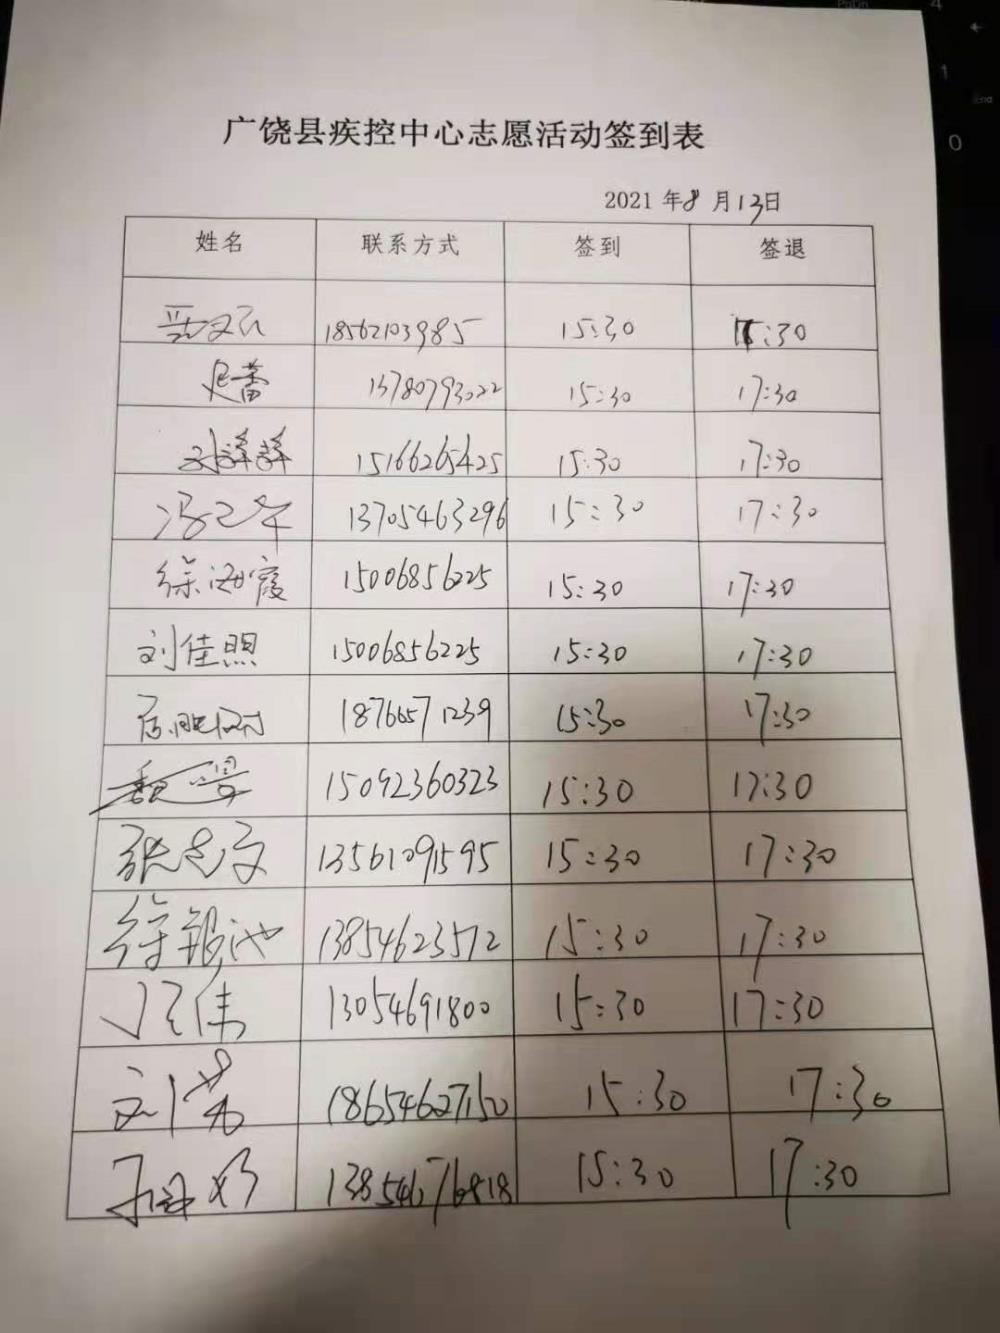 广饶县疾控中心志愿活动签到表
2021 年8 月13日
姓名 联系方式 签到 签退
18562103985 15:30 17:30
蕾 13780793022 15:30 17:30
刘 15166265425 15:30 17:30
冯 13705463296 15:30 17:30
徐海霞 15006856225 15:30 17:30
刘佳照 15006856225 15:30 17:30
18766571239 15:30 17:30
魏 15092360323 15:30 17:30
张志文 13561091595 15:30 17:30
徐银池 13854623572 15:30 17:30
伟 13054691800 15:30 17:30
刘 18654627150 15:30 17:30
13854676818 15:30 17:30